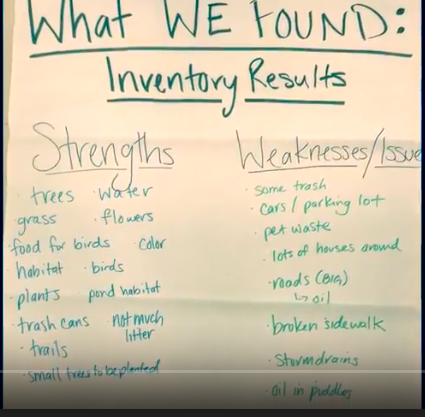 What WE FOUND:
Inventory Results
Strengths
· trees · Water
· grass · flowers
· food for birds · color
· habitat · birds
· plants pond habitat
· trash cans not much
litter
· trails
· small trees to be planted
Weaknesses/Issue
· some trash
· cars / parking lot
· pet waste
· lots of houses around
· roads (BIG)
↳ oil
· broken sidewalk
· Stormdrains
· oil in puddles